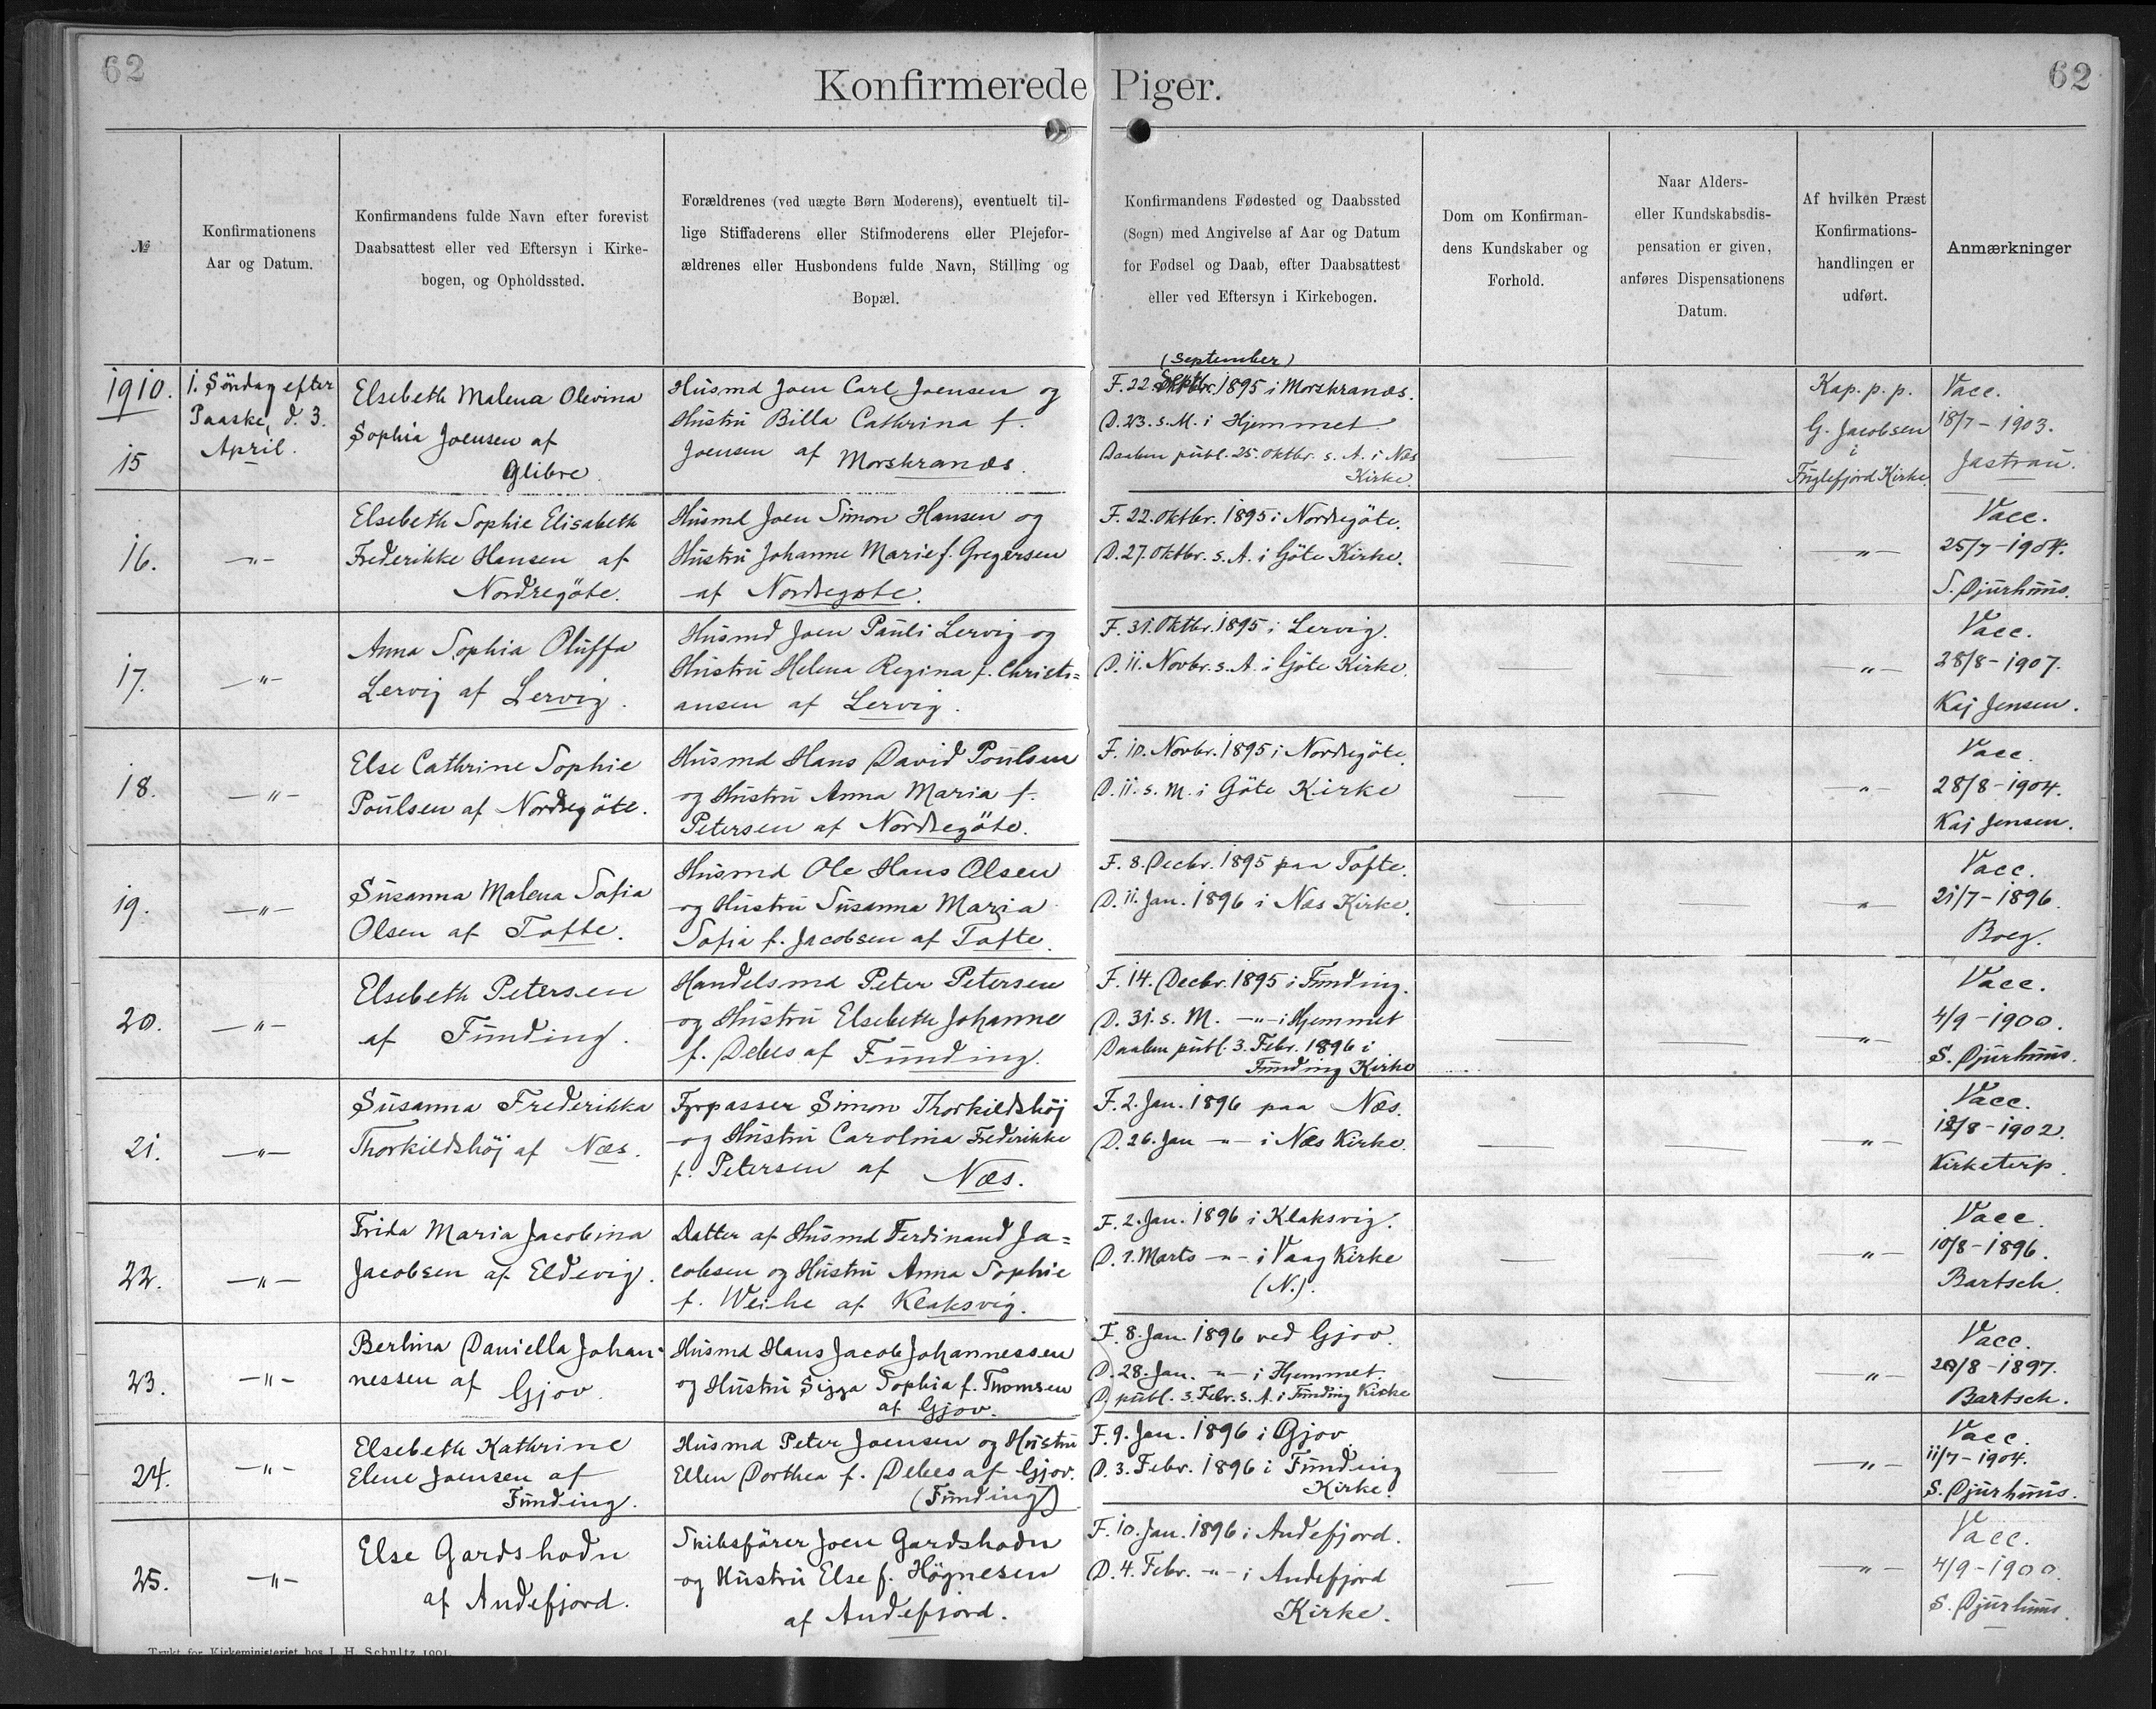 62
62
Konfirmerede Piger.
№
Konfirmationens
Aar og Datum.
Konfirmandens fulde Navn efter forevist
Daabsattest eller ved Eftersyn i Kirke-
bogen, og Opholdssted.
Forældrenes (ved uægte Børn Moderens), eventuelt til-
lige Stiffaderens eller Stifmoderens eller Plejefor-
ældrenes eller Husbondens fulde Navn, Stilling og
Bopæl.
Konfirmandens Fødested og Daabssted
(Sogn) med Angivelse af Aar og Datum
for Fødsel og Daab, efter Daabsattest
eller ved Eftersyn i Kirkebogen.
Dom om Konfirman-
dens Kundskaber og
Forhold.
Naar Alders-
eller Kundskabsdis-
pensation er given,
anføres Dispensationens
Datum.
Af hvilken Præst
Konfirmations-
handlingen er
udført.
Anmærkninger
1910.
15
1. Söndag efter
Paaske, d. 3.
April.
Elsebeth Malena Olevina
Sophia Joensen af
Glibre.
Husmd Joen Carl Joensen og
Hustru Billa Cathrina f.
Joensen af Morskranes.
(September)
F. 22. 1895 i Morskranes.
D. 23. s. M. i Hjemmet
Daaben publ. 25. Oktbr. s. A. i Næs
Kirke.
Kap. p. p.
G. Jacobsen
i
Fuglefjord Kirke.
Vacc.
18/7 - 1903.
Jastrau.
16.
-"-
Elsebeth Sophie Elisabeth
Frederikke Hansen af
Nordregöte.
Husmd Joen Simon Hansen og
Hustru Johanne Marie f. Gregersen
af Nordregøte.
F. 22. Oktbr. 1895 i Nordregöte.
D. 27. Oktbr. s. A. i Göte Kirke.
-"-
Vacc.
25/7 - 1904.
S. Djurhuus.
17.
-"-
Anna Sophia Oluffa
Lervig af Lervig.
Husmd Joen Pauli Lervig og
Hustru Helena Regina f. Christi=
ansen af Lervig.
F. 31. Oktbr. 1895 i Lervig.
D. 11. Novbr. s. A. i Göte Kirke.
-"-
Vacc.
28/8 - 1907.
Kaj Jensen.
18.
-"-
Else Cathrine Sophie
Poulsen af Nordregöte.
Husmd Hans David Poulsen
og Hustru Anna Maria f.
Petersen af Nordregöte.
F. 10. Novbr. 1895 i Nordregöte.
D. 11. s. M. i Göte Kirke
-"-
Vacc.
28/8 - 1904.
Kaj Jensen.
19.
-"-
Susanna Malena Sofia
Olsen af Tofte.
Husmd Ole Hans Olsen
og Hustru Susanna Maria
Sofia f. Jacobsen af Tofte.
F. 8. Decbr. 1895 paa Tofte.
D. 11. Jan. 1896 i Næs Kirke.
"
Vacc.
21/7 - 1896.
Boeg.
20.
-"-
Elsebeth Petersen
af Funding.
Handelsmd Peter Petersen
og Hustru Elsebeth Johanne
f. Debes af Funding.
F. 14. Decbr. 1895 i Funding.
D. 31. s. M. -"- i Hjemmet
Daaben publ. 3. Febr. 1896 i
Funding Kirke
-"-
Vacc.
4/9 - 1900.
S. Djurhuus.
21.
-"-
Susanna Frederikka
Thorkildshöj af Næs.
Fyrpasser Simon Thorkildshöj
og Hustru Carolina Frederikke
f. Petersen af Næs.
F. 2. Jan. 1896 paa Næs.
D. 26. Jan -"- i Næs Kirke.
"-
Vacc.
/8 - 1902.
Kirketerp.
22.
-"-
Frida Maria Jacobina
Jacobsen af Eldevig.
Datter af Husmd Ferdinand Ja=
cobsen og Hustru Anna Sophie
f. Weihe af Klaksvig.
F. 2. Jan. 1896 i Klaksvig.
D. 1. Marts -"- i Vaag Kirke
(N.).
"-
Vacc.
10/8 - 1896.
Bartsch.
23.
-"-
Berlina Daniella Johan-
nessen af Gjov.
Husmd Hans Jacob Johannessen
og Hustru Sigga Sophia f. Thomsen
af Gjov.
F. 8. Jan. 1896 ved Gjov.
D. 28. Jan. -"- i Hjemmet.
D. publ. 3. Febr. s. A. i Funding Kirke
"-
Vacc.
/8 - 1897.
Bartsch.
24.
-"-
Elsebeth Kathrine
Elene Joensen af
Funding.
Husmd Peter Joensen og Hustru
Ellen Dorthea f. Debes af Gjov.
(Funding)
F. 9. Jan. 1896 i Gjov.
D. 3. Febr. 1896 i Funding
Kirke.
-"-
Vacc.
11/7 - 1904.
S. Djurhuus.
25.
-"-
Else Gardshodn
af Andefjord.
Skibsförer Joen Gardshodn
og Hustru Else f. Högnesen
af Andefjord.
F. 10. Jan. 1896 i Andefjord.
D. 4. Febr. -"- i Andefjord
Kirke.
-"-
Vacc.
4/9 - 1900.
S. Djurhuus.
Trykt for Kirkeministeriet hos J. H. Schultz 1901.